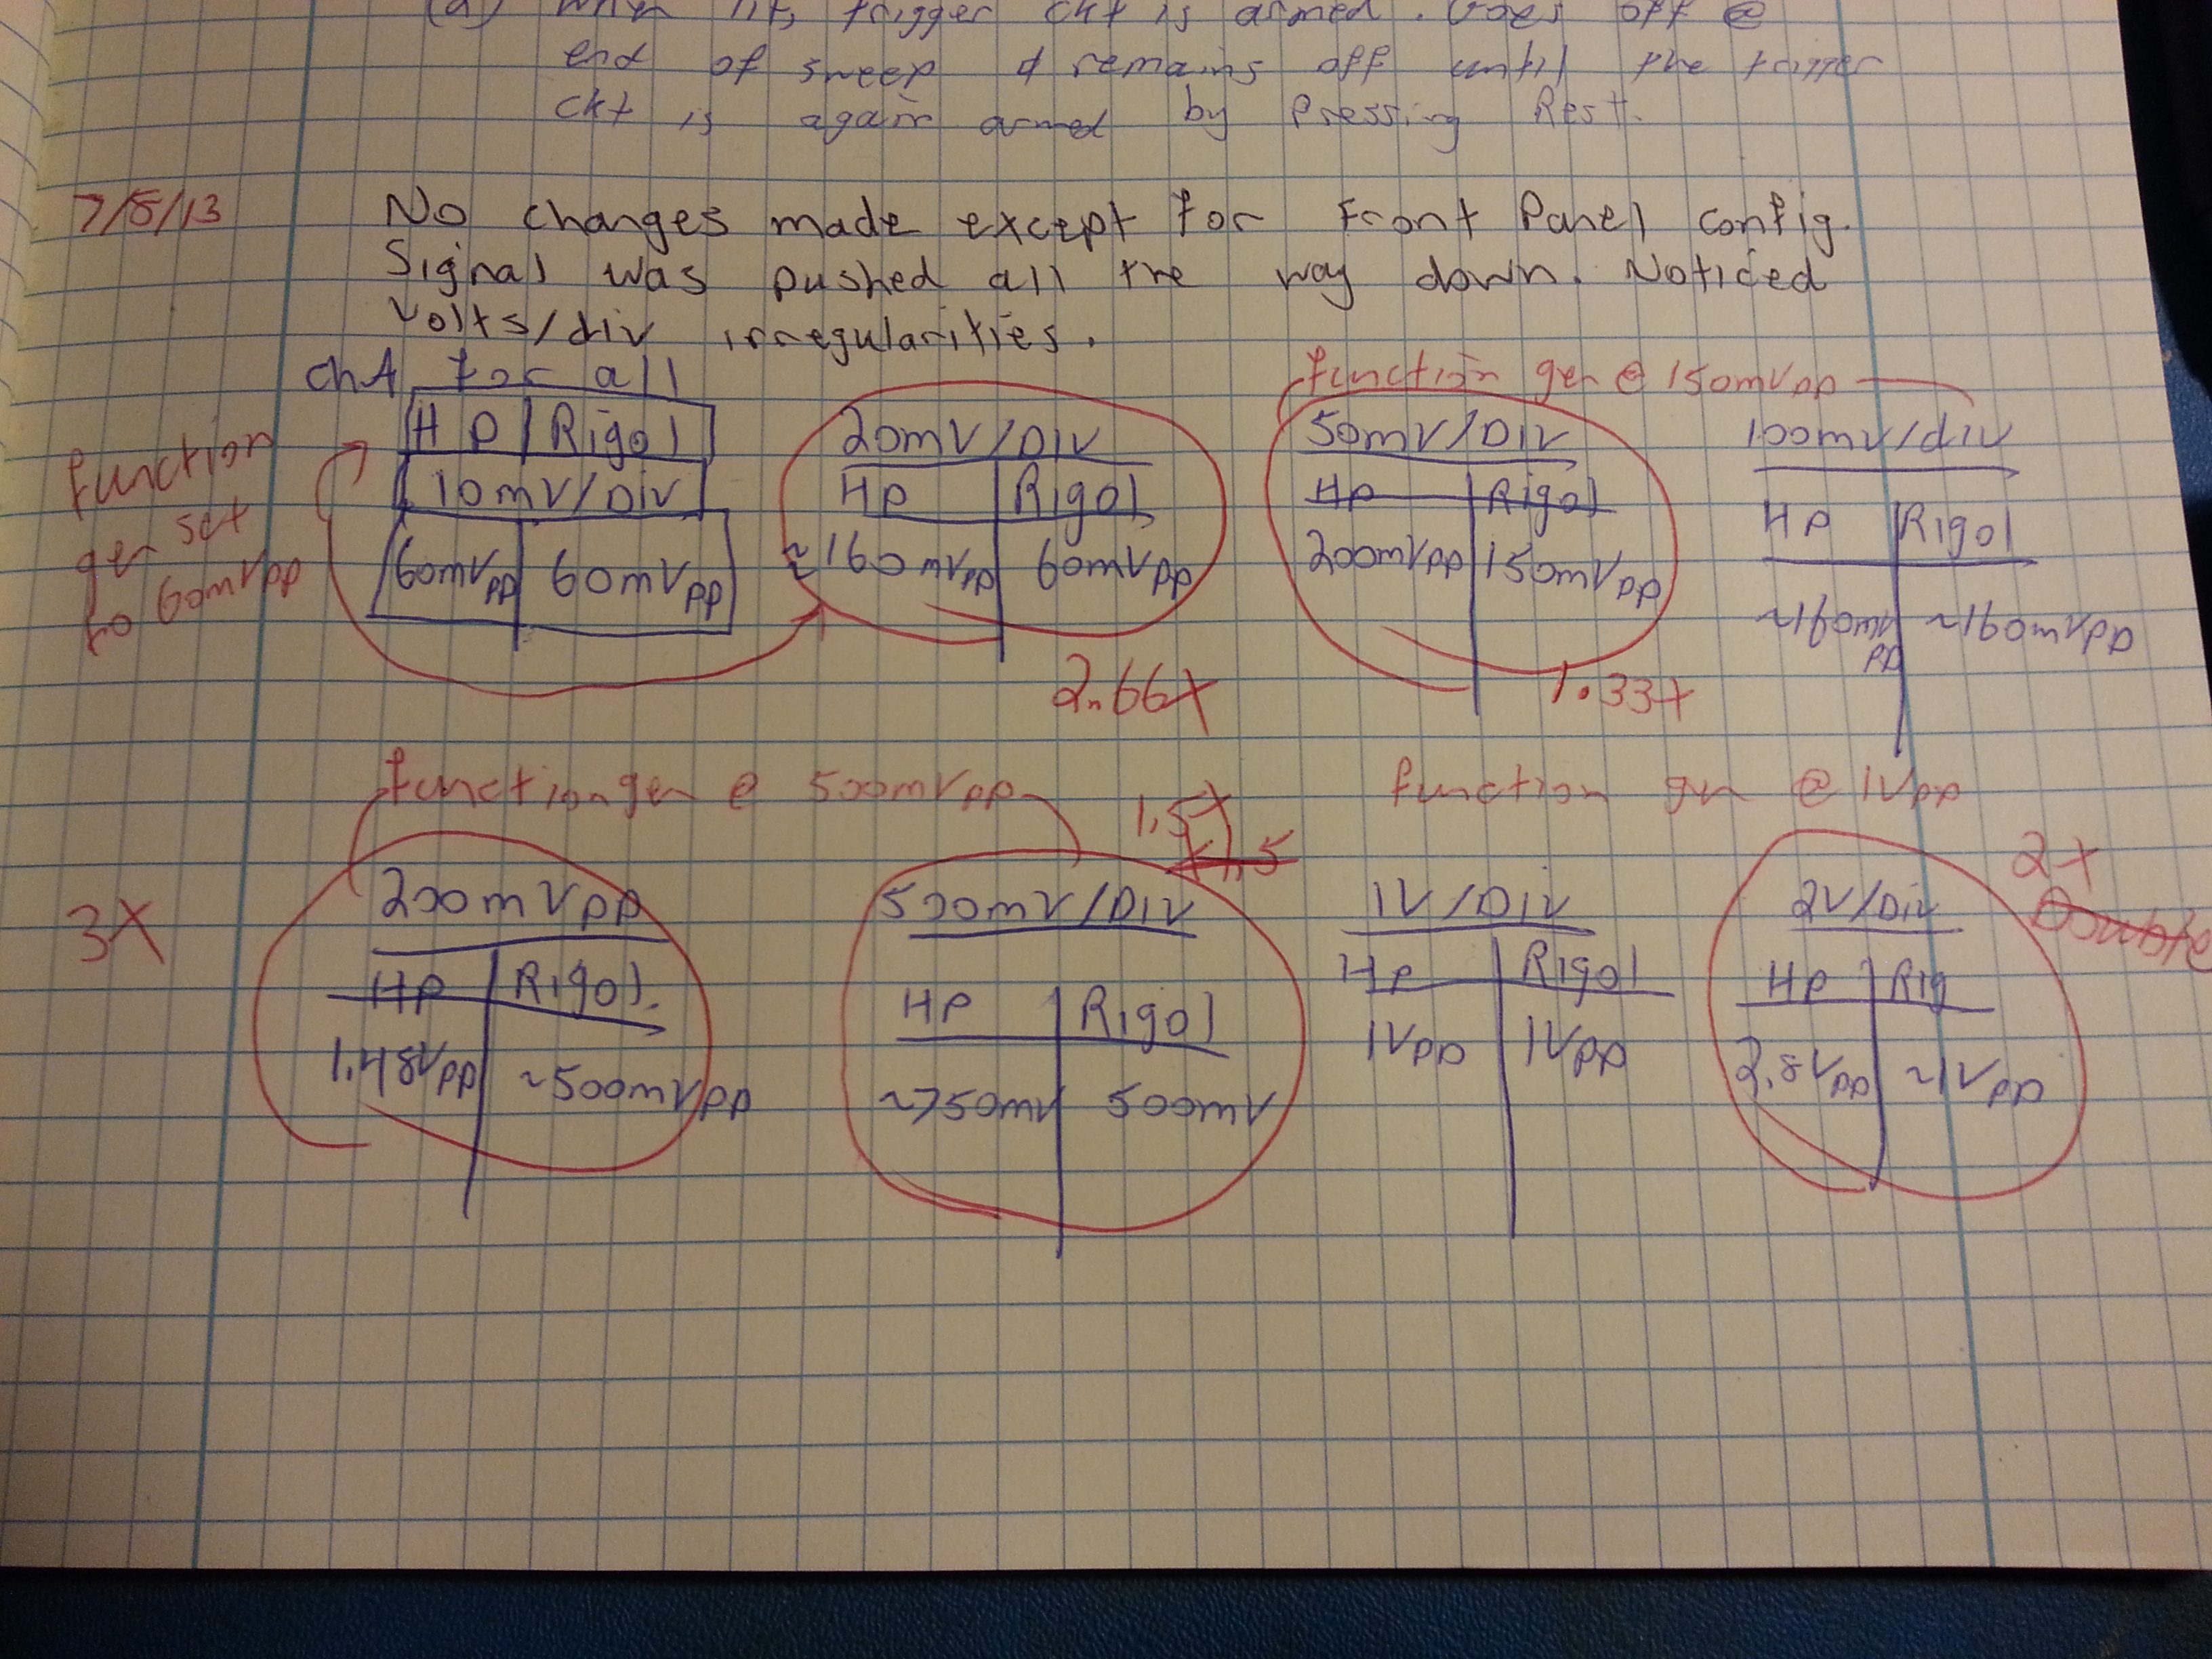 (a) When lit, trigger ckt is armed. Goes off @
end of sweep & remains off until the trigger
ckt is again armed by Pressing Rest.
7/5/13
No changes made except for Front Panel config.
Signal was pushed all the way down. Noticed
Volts/div irregularities.
ChA for all
function gen @ 150mVpp
function
gen set
to 60mVpp
HP | Rigol
10mV/Div
60mVpp | 60mVpp
20mV/Div
HP | Rigol
~160mVpp | 60mVpp
2.66X
50mV/Div
HP | Rigol
200mVpp | 150mVpp
1.33X
100mV/div
HP | Rigol
~160mVpp | ~160mVpp
function gen @ 500mVpp
function gen @ 1Vpp
3X
200mVpp
HP | Rigol
1.48Vpp | ~500mVpp
1.5X
x1.5
500mV/Div
HP | Rigol
~750mV | 500mV
1V/Div
HP | Rigol
1Vpp | 1Vpp
2X
Double
2V/Div
HP | Rig
2.8Vpp | ~1Vpp